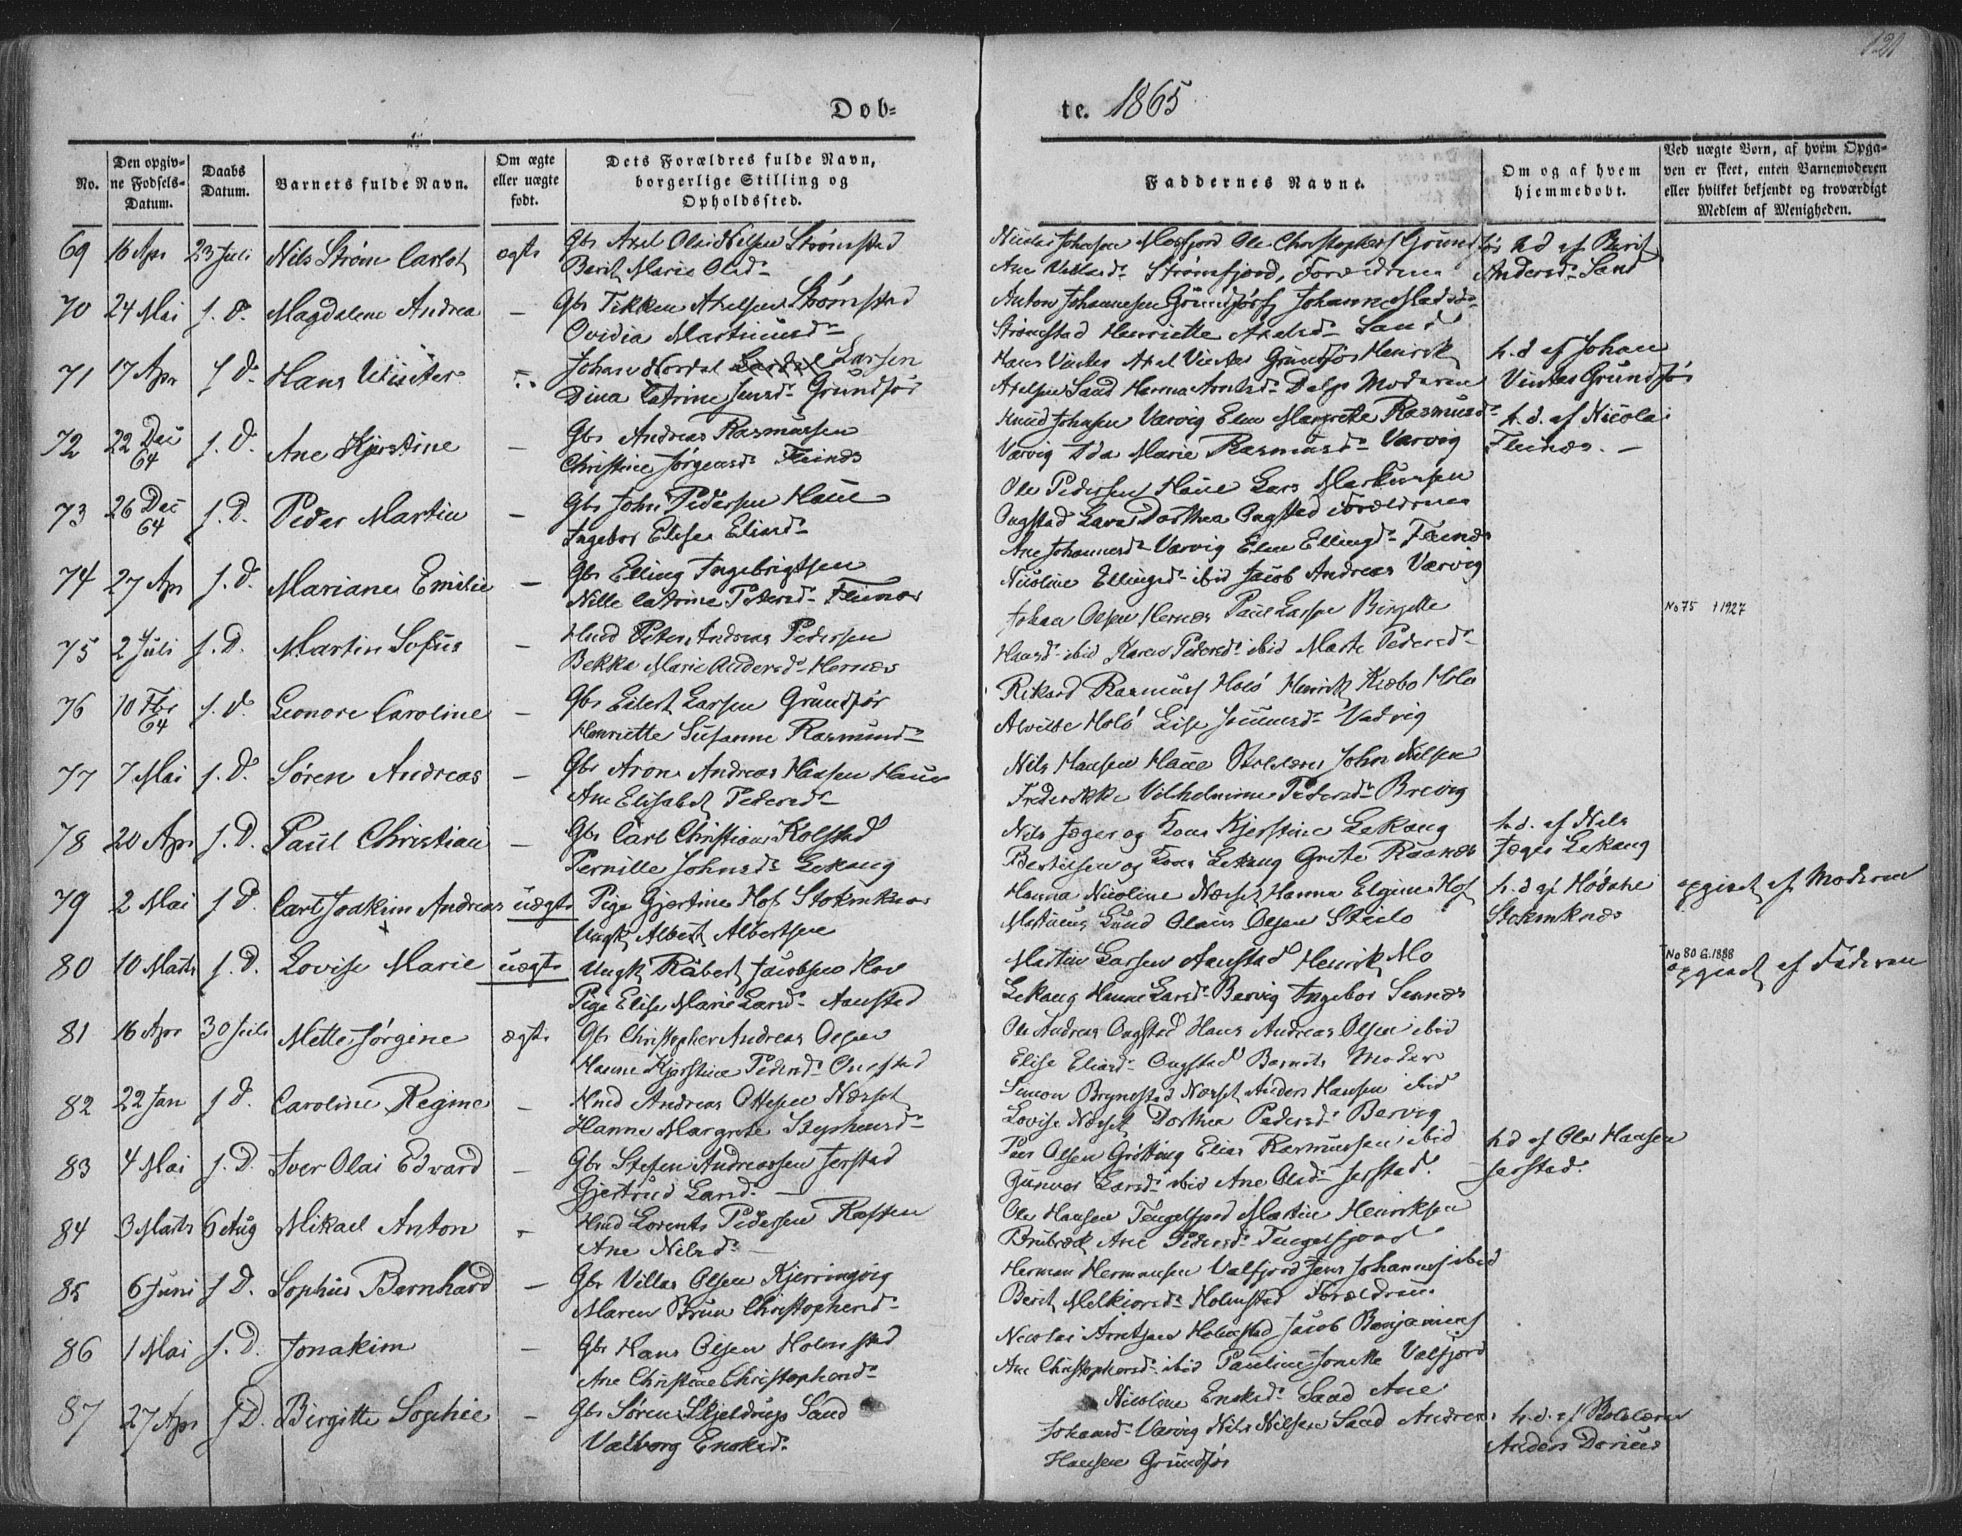 121
Døb-
te. 1865
No.
Den opgiv-
ne Fødsels-
Datum.
Daabs
Datum.
Barnets fulde Navn.
Om ægte
eller uægte
født.
Dets Forældres fulde Navn,
borgerlige Stilling og
Opholdssted.
Faddernes Navne.
Om og af hvem
hjemmedøbt.
Ved uægte Børn, af hvem Opga-
ven er skeet, enten Barnemoderen
eller hvilket bekjendt og troværdigt
Medlem af Menigheden.
69 16 Apr 23 Juli Nils Strøm ægte Gbr Axel Olai Nilsen Strømstad
Berit Marie Olsd.
Nicolai Johnsen Ole Christophers Grundfør
Ane Strømsfjord, Forældrene
h.d. af Berit
Andersd. Sand
70 24 Mai s. D. Magdalene Andrea — Gbr Tikken Axelsen Strømstad
Ovidia Martinusd.
Anton Johannesen Grundførf Johanne Madsd.
Strømstad Henriette Axelsd. Sand
71 17 Apr s. D. Hans Winter Johan Nordal Larsen
Dina Catrine Jensd. Grundfør
Hans Vinter Axel Vinter Grundfør Henrik
Axelsen Sand Hanna Arntsd. Moderen
h.d. af Johan
Vinter Grundfør
72 22 Dec
64 s. D. Ane Kjerstine — Gbr Andreas Rasmussen
Christine Jørgensd. Fleinæs
Knud Johnsen Varvig Elen Margrete Rasmusd.
Varvig Ida Marie Rasmusd. Varvig
h.d. af Nicolai
Fleinæs. —
73 26 Dec
64 s. D. Peder Martin — Gbr John Pedersen Haue
Ingebor Elise Eliasd.
Ole Pedersen Haue Lars Markussen
Ongstad Dorthea Ongstad Forældrene
74 27 Apr s. D. Mariane Emilie — Gbr Elling Ingebrigtsen
Nille Catrine Pedersd. Fleinæs
Ane Johannesd. Varvig Elen Ellingsd. Fleinæs
Nicoline Ellingsd. ibid Jacob Andreas Varvig
75 2 Juli s. D. Martin Sofus — Hmd Peter Andreas Pedersen
Bekka Marie Andersd. Hernæs
Johan Olsen Hernæs Paul Larsen Birgitte
Hansd. ibid Karen Pedersd. ibid Marte Pedersd.
No 75 † 1927
76 10
64 s. D. Leonore Caroline — Gbr Eilert Larsen Grundfør
Henriette Susanne Rasmusd.
Rikard Rasmus Holø Henrik Holø
Alvilde Holø Lise Vadvig
77 7 Mai s. D. Søren Andreas — Gbr Aron Andreas Hansen Haue
Ane Elisabet Pedersd.
Nils Hansen Haue John Nilsen
Frederikke Vilhelmine Pedersd. Brevig
78 20 Apr s. D. Paul Christian — Gbr Carl Christian Kolstad
Pernille Johnsd. Lekang
Nils Jæger og Kone Kjerstine Lekang
Bertilsen og Kone Lekang Grete
h.d. af Nils
Jæger Lekang
79 2 Mai s. D. Carl Joakim Andreas uægte Pige Gjertine Hof Stokmknæs
Ungk. Albert Albertsen
Hanna Nicoline Næset Hanna Hof
Lund Olaus Olsen Steilo
h.d. af
Stokmknæs
opgivet af Moderen
80 10 Marts s. D. Lovise Marie uægte Ungk. Robert Jacobsen Hov
Pige Elise Marie Larsd. Aanstad
Martin Larsen Aanstad Henrik Mo
Lekang Hanne Larsd. Bervig Ingebor
No 80 G.1888
opgivet af Faderen
81 16 Apr 30 Juli Mette Jørgine ægte Gbr Christopher Andreas Olsen
Hanne Kjerstine Pedersd. Ongstad
Ole Andreas Ongstad Hans Andreas Olsen ibid
Elise Eliasd. Ongstad Barnets Moder
82 22 Jan s. D. Caroline Regine — Hmd Andreas Ottesen Næset
Hanne Margrete Stephensd.
Simon Bryndsted Næset Anders Hansen ibid
Lovise Næset Dorthea Pedersd. Bervig
83 4 Mai s. D. Iver Olai Edvard — Gbr Stefen Andreassen Jerstad
Gjertrud Larsd. —
Peer Olsen Grøtting Elias Rasmussen ibid
Gunver Larsd. ibid Ane Olsd. Jerstad.
h.d. af Ole Hansen
Jerstad.
84 3 Marts 6 Aug Mikael Anton — Hmd Lorents Pedersen
Ane Nilsd. —
Ole Hansen Tengelfjord Martin Henriksen
Ane Pedersd. Tengelfjord
85 6 Juni s. D. Sophus Bernhard — Gbr Villas Olsen Kjerringvig
Maren Bruun Christophersd.
Herman Hermansen Valfjord Jens Johannes ibid
Berit Melkiorsd. Holmstad Forældrene
86 1 Mai s. D. Jonakim — Gbr Hans Olsen Holmstad
Ane Christine Christophersd.
Nicolai Arntsen Holmstad Jacob Benjamins
Ane Christophersd. ibid Pauline Jonette Valfjord
87 27 Apr s. D. Birgitte Sophie — Gbr Søren Skjeldrup Sand
Valborg Enoksd.
Nicoline Enoksd. Sand Ane
Johansd. Varvig Nils Nilsen Sand Andreas
Hansen Grundfør
h.d. af
Anders Darius